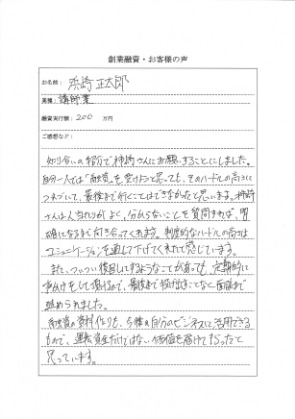 創業融資・お客様の声
お名前: 浜崎 正太郎
業種: 講師業
融資実行額: 200 万円
ご感想など:
知り合いの紹介で柿崎さんにお願いすることにしました。
自分一人では「融資」を受けようと思っても、そのハードルの高さに
つまづいて、最後まで行くことはできなかったと思います。柿崎
さんは人当たりがよく、分からないことを質問すれば、明
確になるまで付き合ってくれます。制度的なハードルの高さは
コミュニケーションを通して下げてくれたと感じています。
また、ついつい後回しにするようなことがあっても、定期的に
声かけをして頂けるので、最後まで投げ出すことなく面談まで
進められました。
融資の資料作りも、今後の自分のビジネスに活用できる
もので、運転資金だけではない価値を届けてもらったと
思っています。